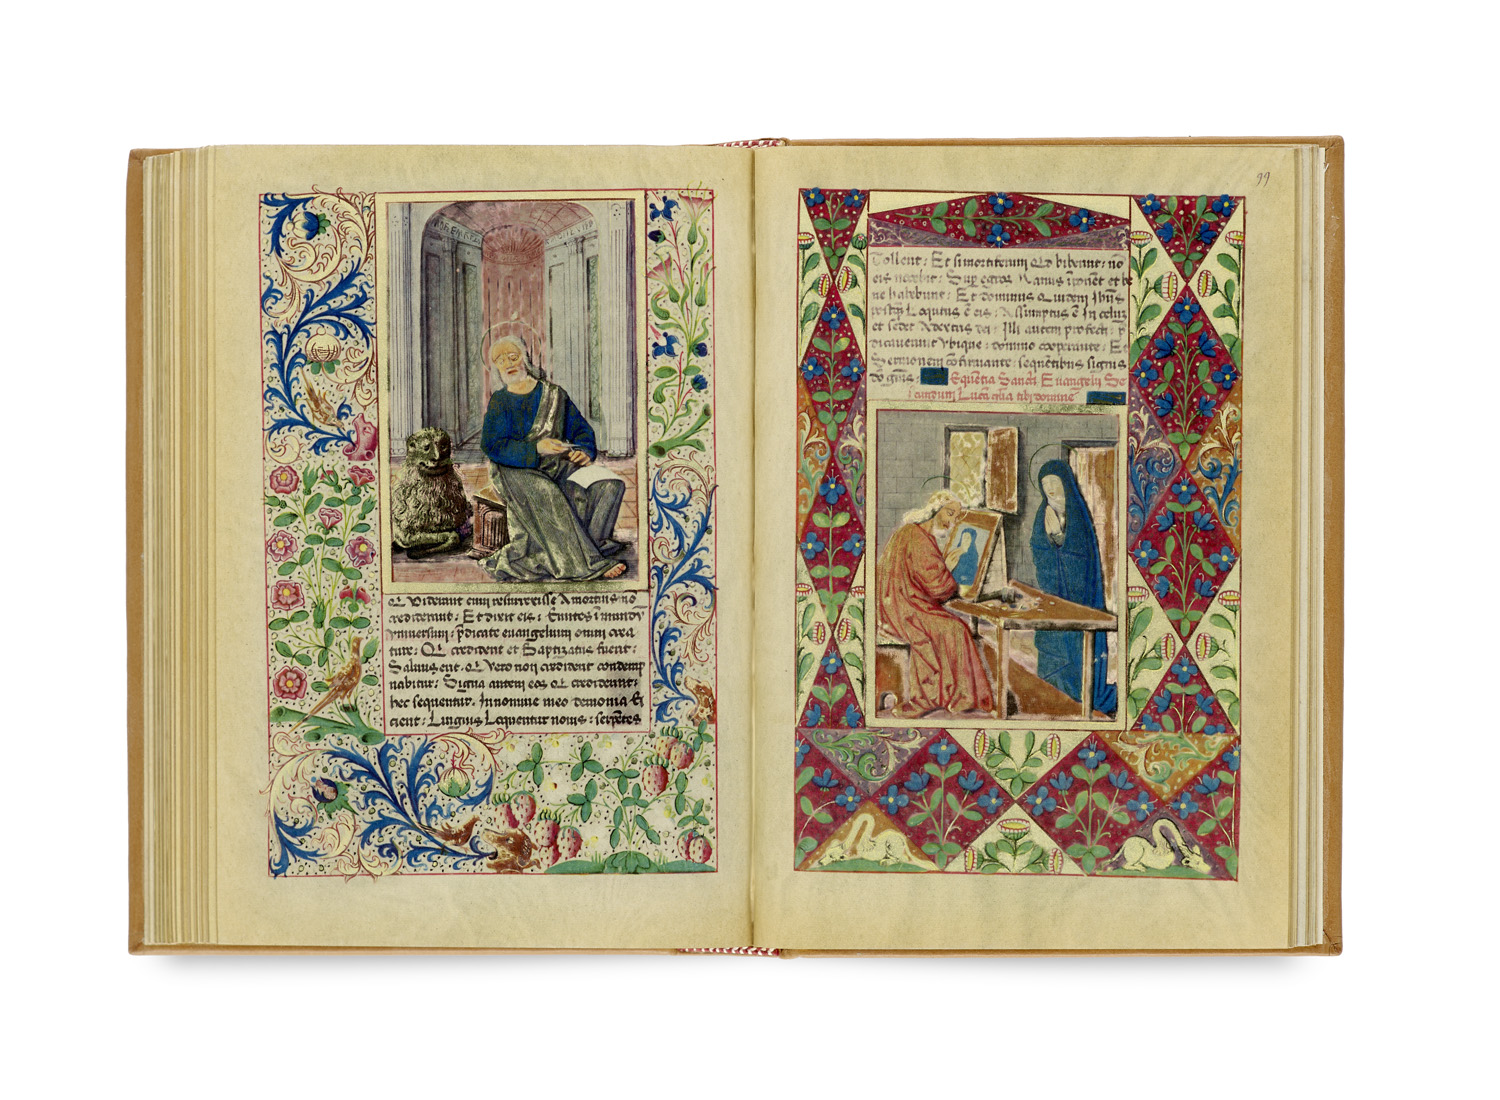 Qͥ viderant eum resurrexisse A mortuis nō
crediderunt : Et dixit eis : Euntes ī mundū
vniversum : p̄dicate euangelium omni crea
ture : Qͥ crediderit et Baptizatus fuerit :
Saluus erit . Qͥ vero non crediderit condemp
nabitur : Signa autem eos Qͥ crediderint :
hec sequentur . In nomine meo demonia Ei
cient : Linguis Loquentur nouis : serpētes
99
Tollent : Et si mortiferum Qͩ biberint : nō
eis nocebit : Suꝑ egros Manus īponēt et be
ne habebunt : Et dominus Quidem Ihūs
postqͣ Loqutus ē eis : Assumptus ē In celum
et sedet A dextris dei : Illi autem profecti : p̄
dicauerunt Vbique : domino cooperante : Et
Sermonem cōfirmante : sequētibus signis
dō grās : Equētia Sancti Euangelii Se
cundum Lucā glīa tibi domine